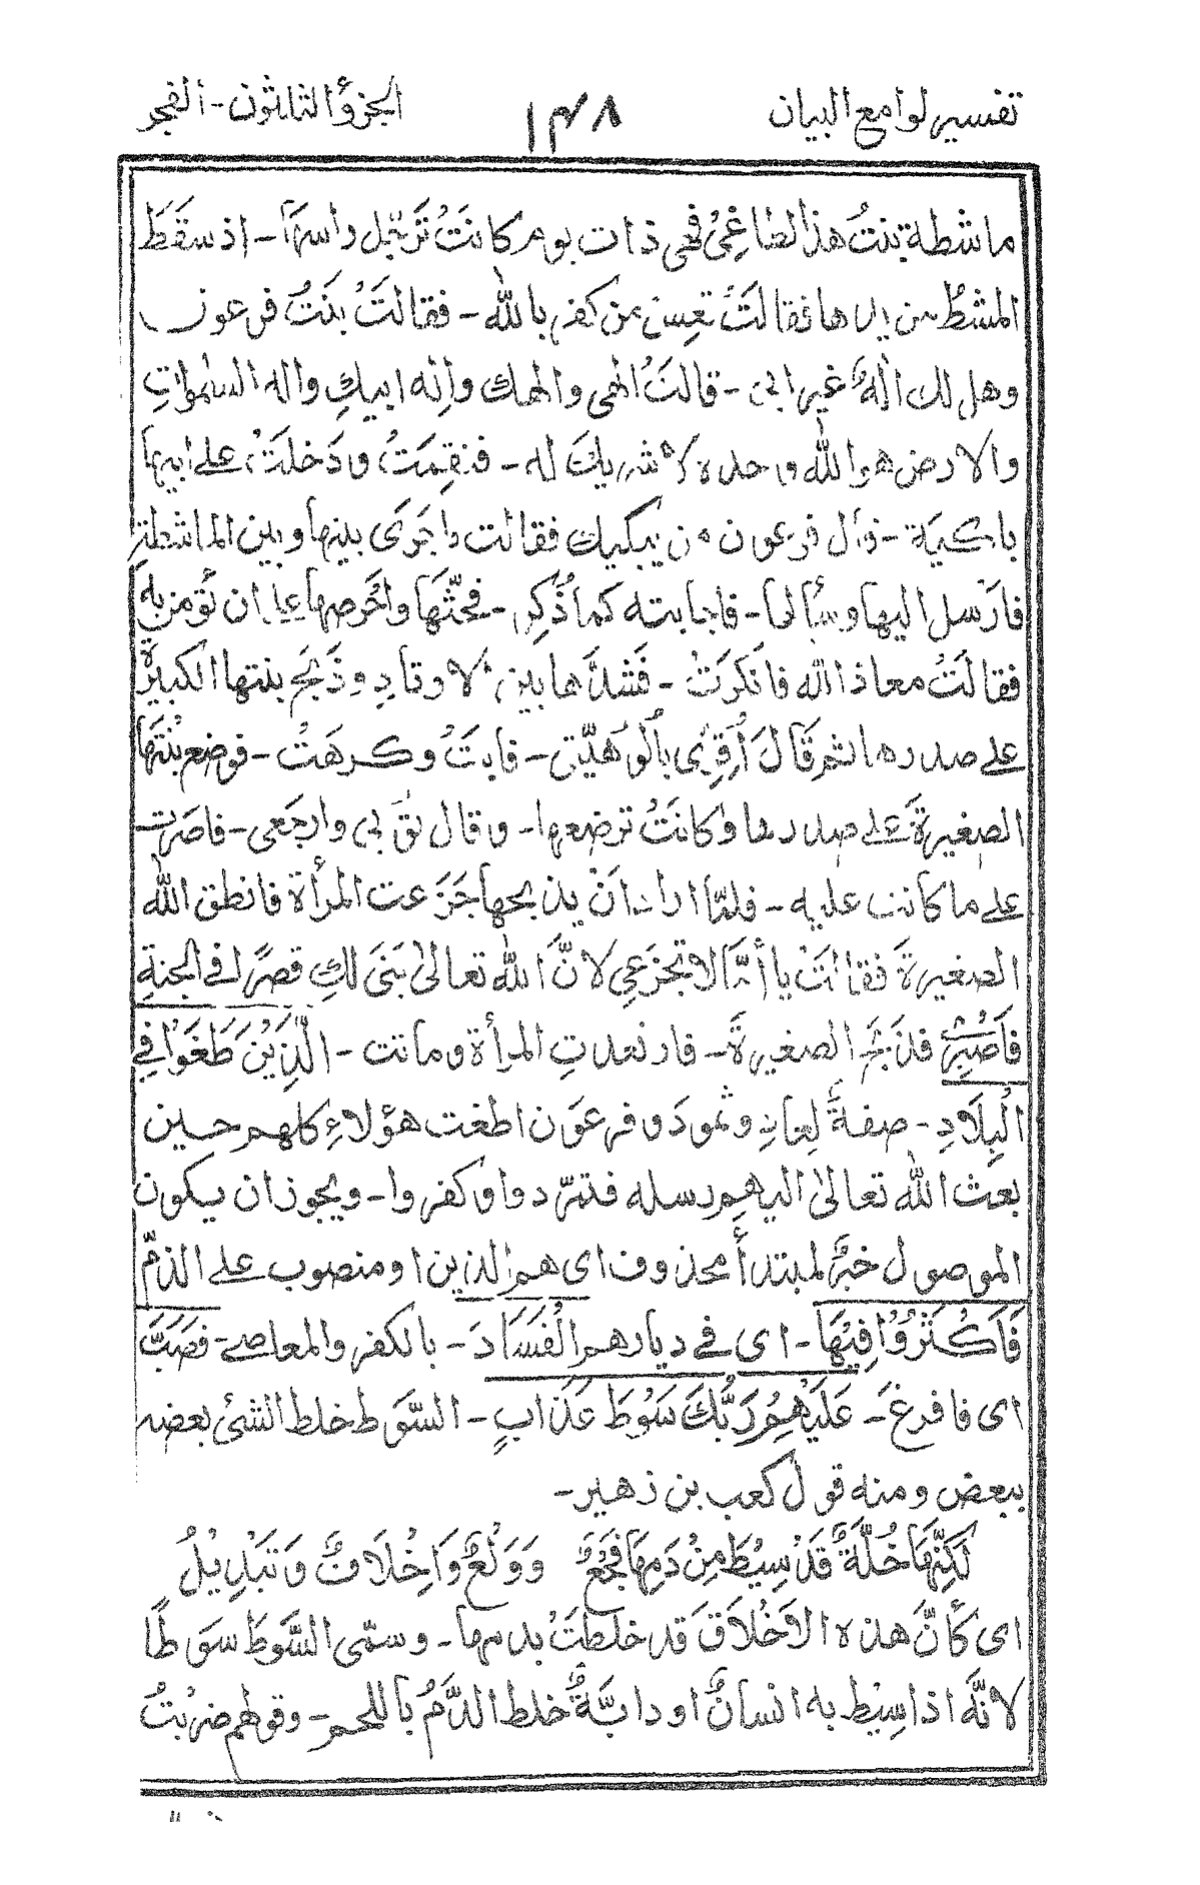 تفسير لوامع البيان ١٤٨ الجزؤ الثلثون - الفجر
ماشطة بنتُ هذا الطاغي ففي ذات يوم كانتُ تَرجّل رأسها - اذ سقَطَ
المشطُ من يدها فقالتَ تعِس من كفر بالله - فقالتُ بنتُ فرعون
وهل لك الٰه غير ابى - قالتُ الٰهي والٰهك واِلٰه ابيكِ واله السمٰواتِ
والارض هو الله وحده لا شريك له - فنقِمَتُ ودَخلَتُ على ابيها
باكيَة - قال فرعون من يبكيك فقالت ما جَرٰى بينها وبين الماشطةِ
فارَسل اليها وسألها - فاجابته كما ذُكر - فحثّها واحُرصها على ان تؤمن به
فقالَتُ معاذ الله فانكرَتُ - فَشدَّها بين الاوتادِ وذَبَح بنتها الكبيرةَ
على صدرها ثم قَالَ أَقِرّى بألوهيّتى - فابتَ وكرهَتُ - فوضع بنُتَها
الصغيرةَ على صدرها وكانَتُ ترضعها - وقال وارجَعى - فاصَرت
على ما كانت عليه - فلمّا اراد اَنْ يذبحها جَزَعت المرأة فانطق الله
الصغيرةَ فقالتَ يا أمّا لا تجزَعِى لانَّ الله تعالىٰ بَنٰى لكِ قصرًا في الجنةِ
فاَصُبِرُ فذَبَحَ الصغيرةَ - فارتعدتِ المرأة وماتت - الَّذِيُنَ طَغَوُا فِي
الُبِلَادِ - صفةً لِعادٍ وثمودَ وفرعَون اطغت هؤلاءِ كلهم حين
بعث الله تعالىٰ اليهم رسله فتمرّدوا وكفروا - ويجوز ان يكون
الموصول خبرً لمبتدأ محذوف اى هم الذين او منصوب على الذمّ
فَاَكُثَرُوُا فِيُهَا - اى في ديارهم الُفَسَادَ - بالكفر والمعاصى - فصَبَّ
اى فافرغَ - عَلَيُهِمُ رَبُّكَ سَوُطَ عَذَابٍ - السَّوَط خلط الشئ بعضه
ببعض ومنه قول كعب بن زهير -
لَكِنَّهَا خُلَّةٌ قَدُ سِيُطَ مِنُ دَمِهَا فَجُعٌ وَوَلُعٌ وَاِخُلَافٌ وَتَبُدِيُلُ
اى كأنَّ هذه الاَخُلاقَ قد خلطتُ بدمها - وسمّى السَّوطَ سَوطًا
لانَّه اذا سِيُط به انسانٌ او دابَّةٌ خلط الدَّمُ باللحم - وقولهم ضربُتُ